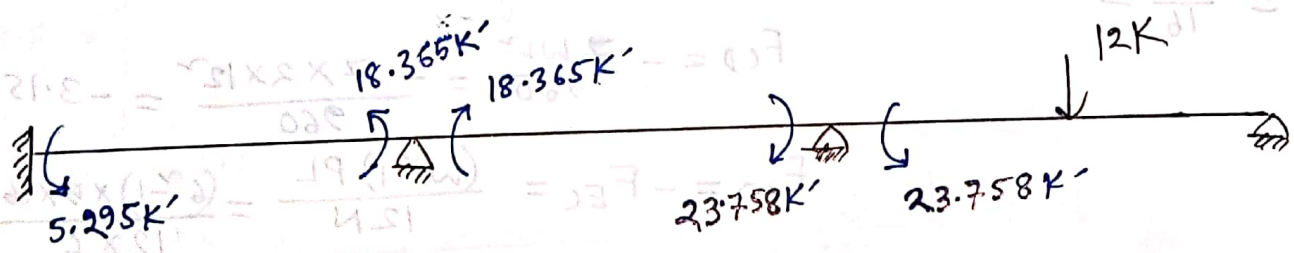 18.365K′
18.365K′
12K
5.295K′
23.758K′
23.758K′